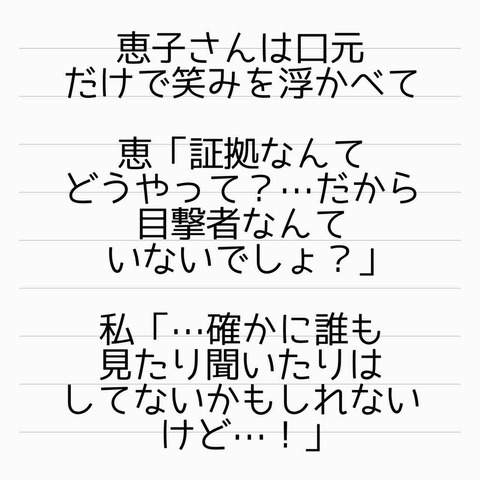 恵子さんは口元
だけで笑みを浮かべて
恵「証拠なんて
どうやって？…だから
目撃者なんて
いないでしょ？」
私「…確かに誰も
見たり聞いたりは
してないかもしれない
けど…！」